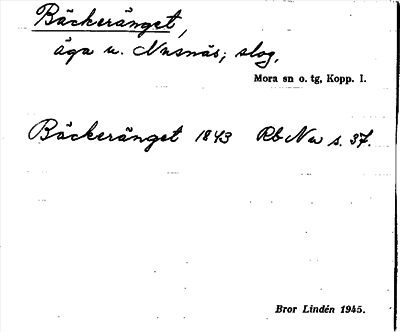 Bäckeränget,
äga u. Nusnäs; slog.
Mora sn o. tg, Kopp. l.
Bäckeränget 1843 Rb Nu s. 37.
Bror Lindén 1945.